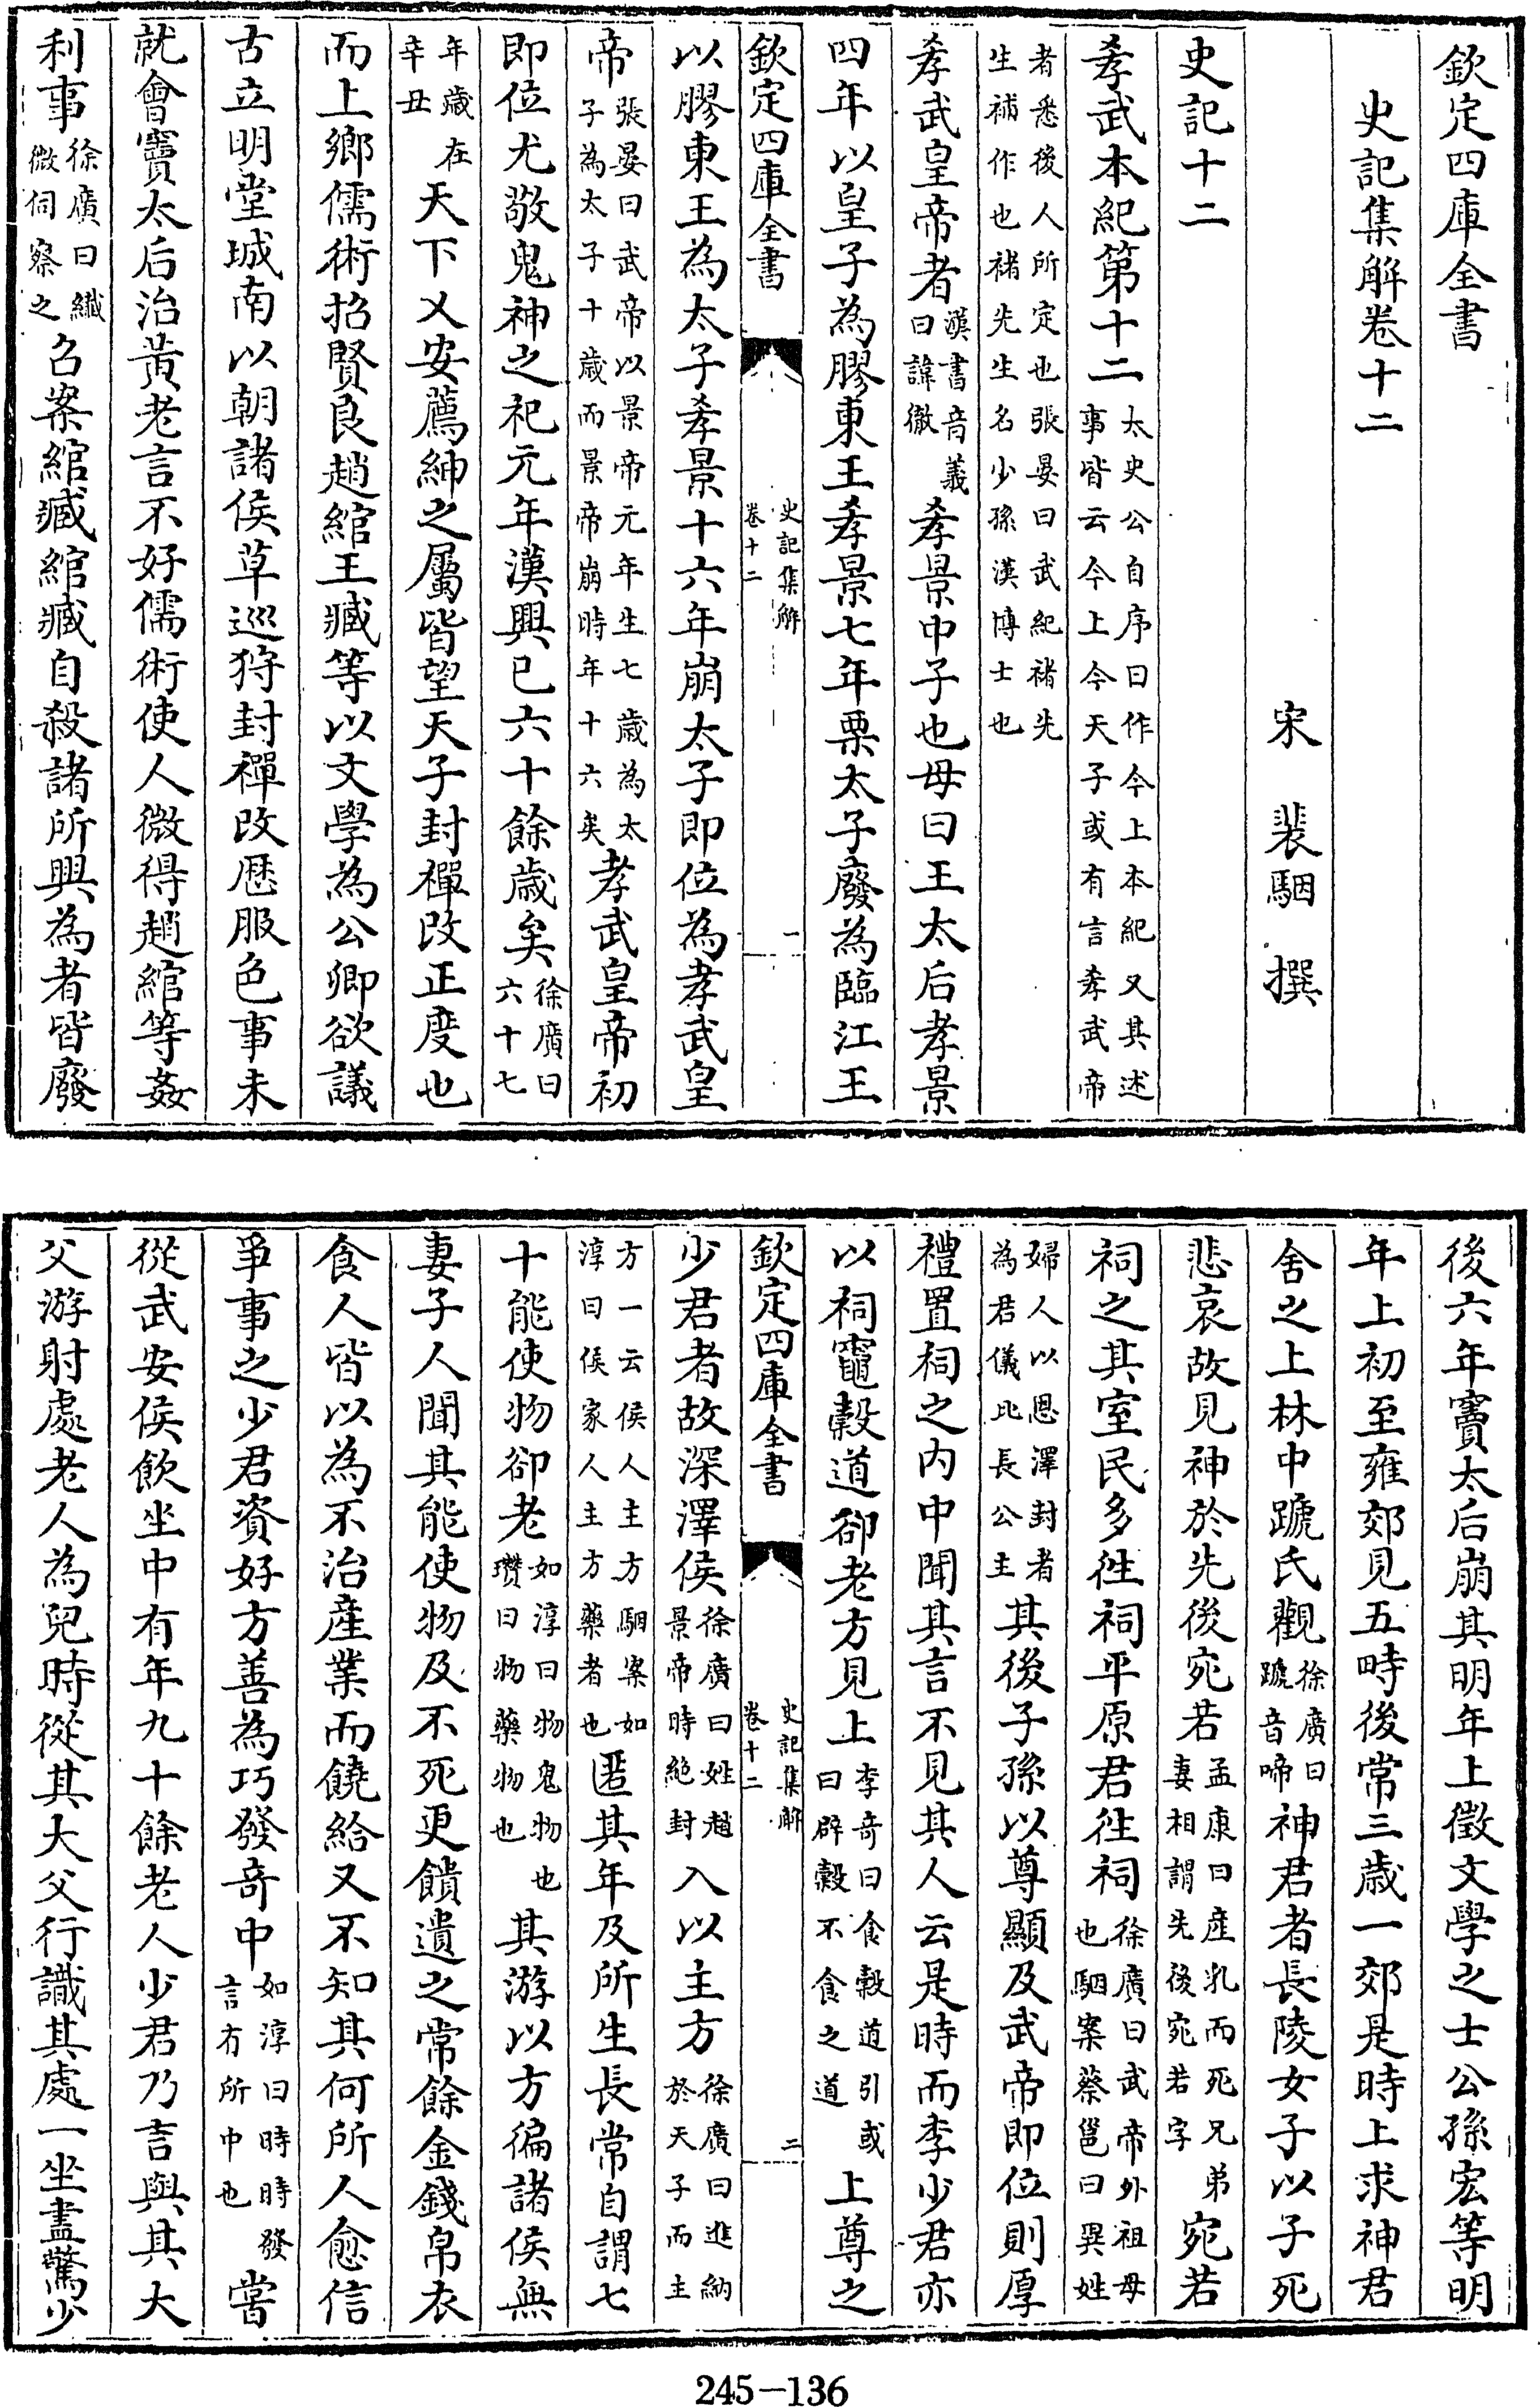 欽定四庫全書
史記集解卷十二
宋　裴駰　撰
史記十二
孝武本紀第十二太史公自序曰作今上本紀又其述事皆云今上今天子或有言孝武帝
者悉後人所定也張晏曰武紀褚先生補作也褚先生名少孫漢博士也
孝武皇帝者漢書音義曰諱徹孝景中子也母曰王太后孝景
四年以皇子為膠東王孝景七年栗太子廢為臨江王
欽定四庫全書　史記集解卷十二　一
以膠東王為太子孝景十六年崩太子即位為孝武皇
帝張晏曰武帝以景帝元年生七歲為太子為太子十歲而景帝崩時年十六矣孝武皇帝初
即位尤敬鬼神之祀元年漢興已六十餘歲矣徐廣曰六十七
年歲在辛丑天下乂安薦紳之屬皆望天子封禪改正度也
而上鄉儒術招賢良趙綰王臧等以文學為公卿欲議
古立明堂城南以朝諸侯草巡狩封禪改厯服色事未
就會竇太后治黃老言不好儒術使人微得趙綰等姦
利事徐廣曰纎微伺察之召案綰臧綰臧自殺諸所興為者皆廢
後六年竇太后崩其明年上徵文學之士公孫宏等明
年上初至雍郊見五畤後常三歲一郊是時上求神君
舍之上林中蹏氏觀徐廣曰蹏音啼神君者長陵女子以子死
悲哀故見神於先後宛若孟康曰産乳而死兄弟妻相謂先後宛若字宛若
祠之其室民多徃祠平原君徃祠徐廣曰武帝外祖母也駰案蔡邕曰異姓
婦人以恩澤封者為君儀比長公主其後子孫以尊顯及武帝即位則厚
禮置祠之内中聞其言不見其人云是時而李少君亦
以祠竈穀道卻老方見上李奇曰食穀道引或曰辟穀不食之道上尊之
欽定四庫全書　史記集解卷十二　二
少君者故深澤侯徐廣曰姓趙景帝時絶封入以主方徐廣曰進納於天子而主
方一云侯人主方駰案如淳曰侯家人主方藥者也匿其年及所生長常自謂七
十能使物卻老如淳曰物鬼物也瓚曰物藥物也其游以方徧諸侯無
妻子人聞其能使物及不死更饋遺之常餘金錢帛衣
食人皆以為不治産業而饒給又不知其何所人愈信
爭事之少君資好方善為巧發竒中如淳曰時時發言有所中也嘗
從武安侯飲坐中有年九十餘老人少君乃言與其大
父游射處老人為兒時從其大父行識其處一坐盡驚少
245-136